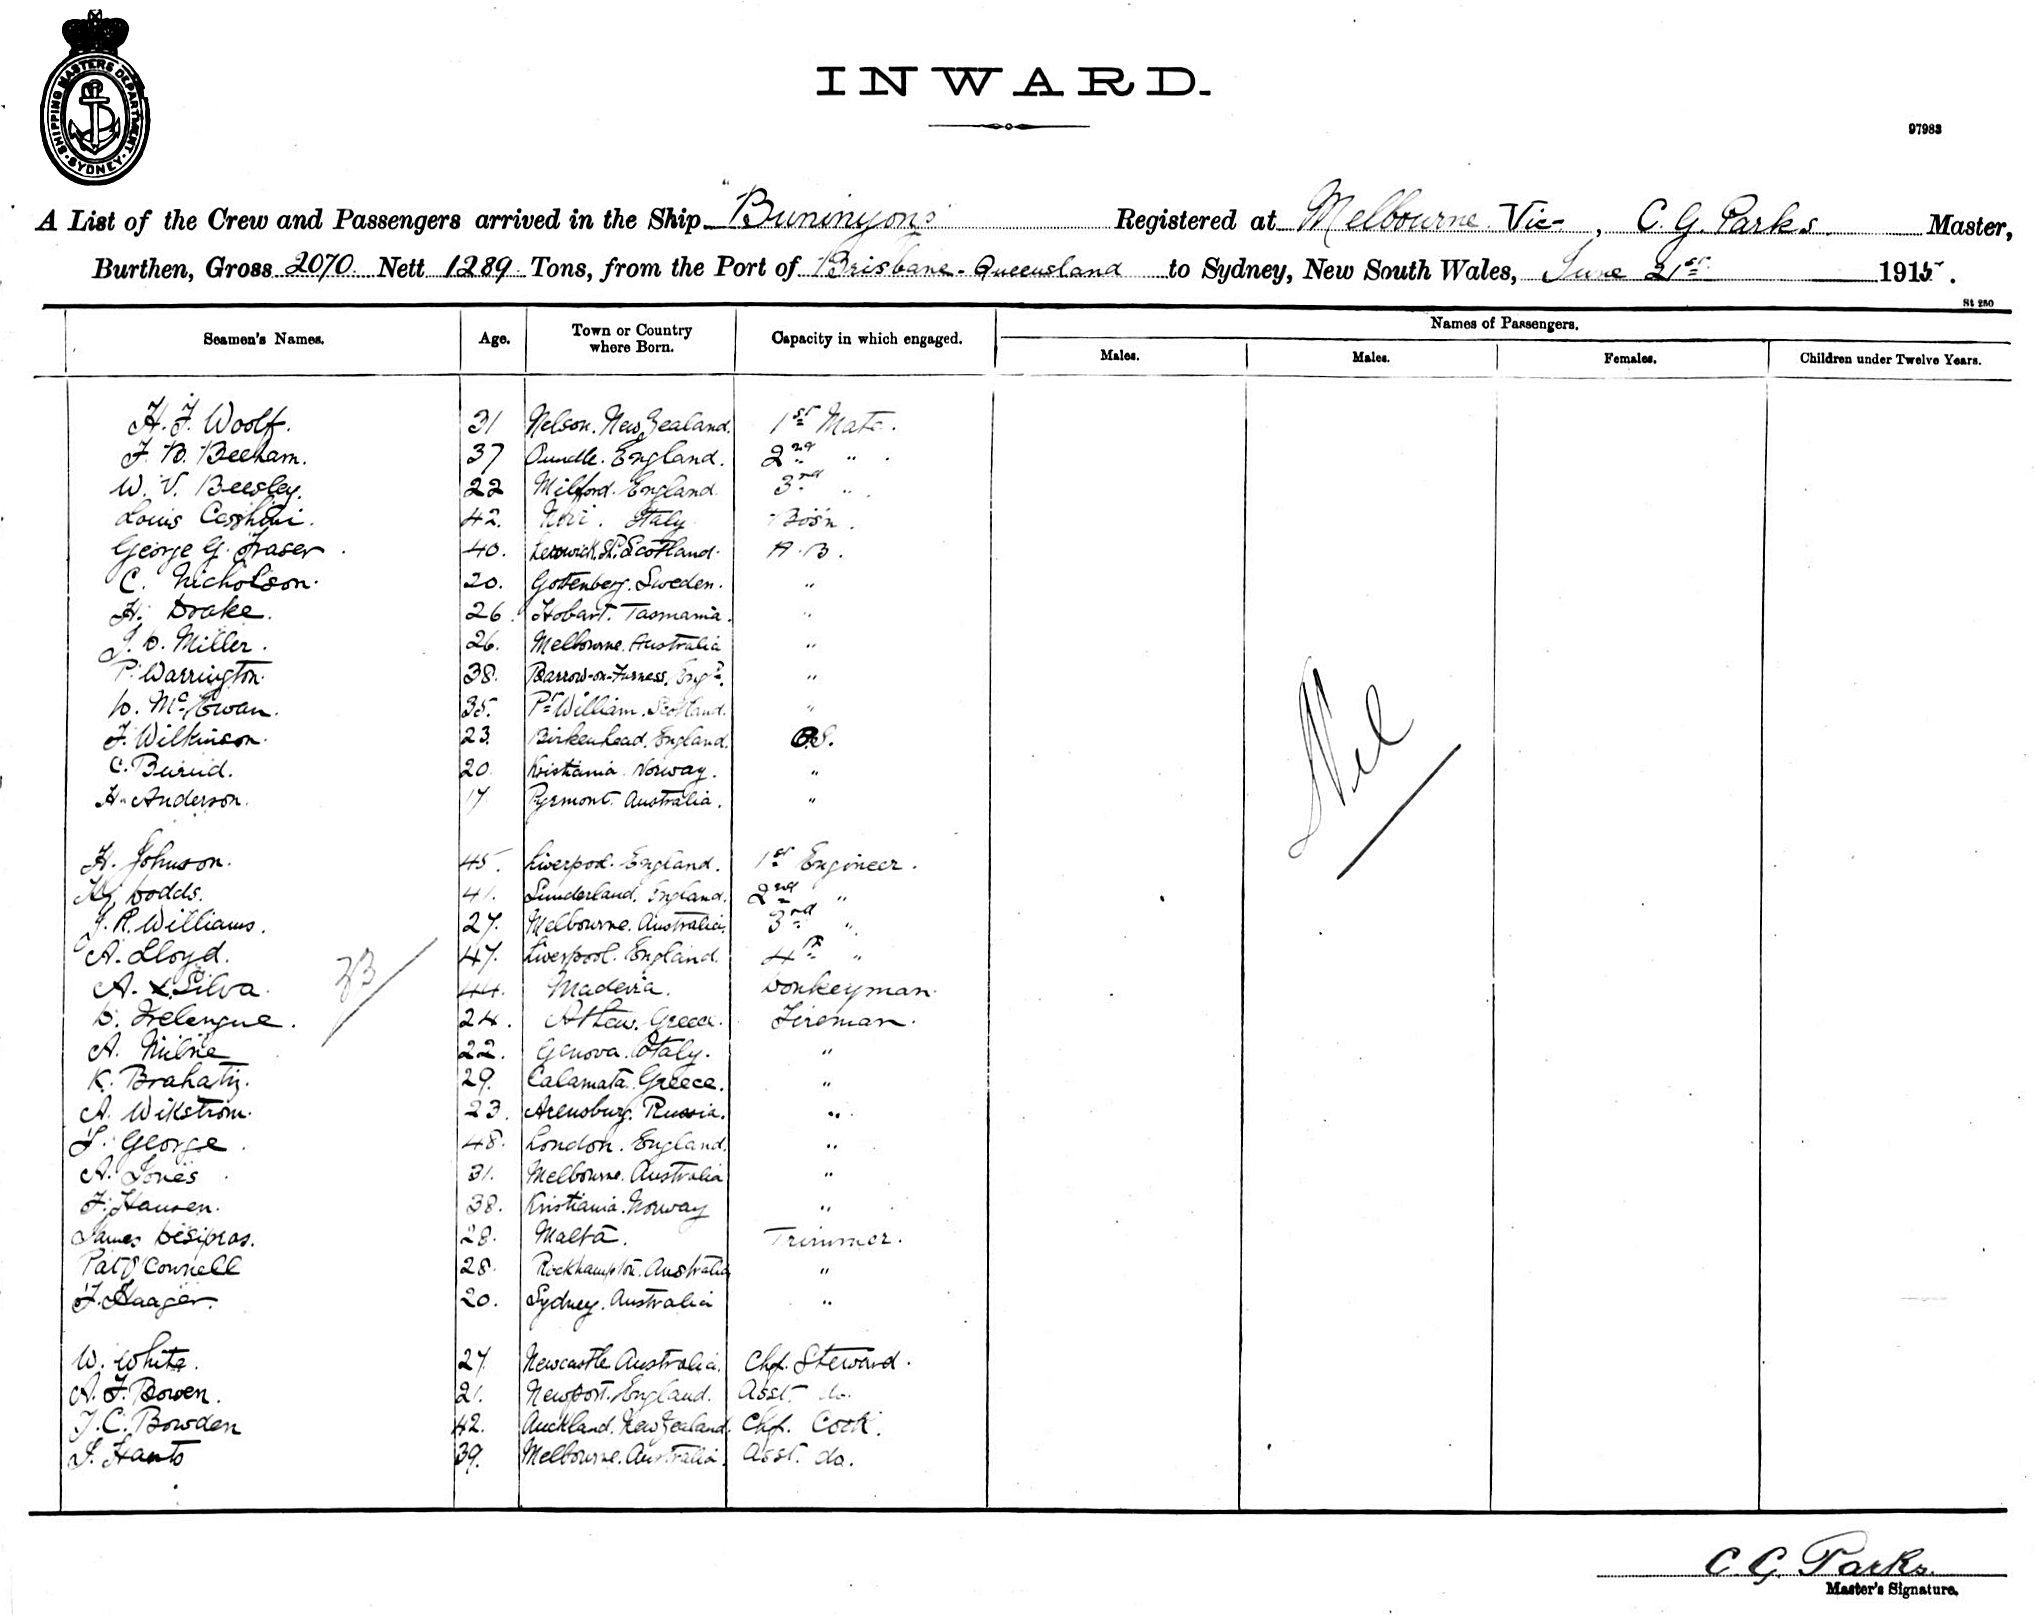 SHIPPING MASTERS DEPARTMENT · SYDNEY ·
INWARD.
97983
A List of the Crew and Passengers arrived in the Ship "Buninyong" Registered at Melbourne Vic-, C. G. Parks Master,
Burthen, Gross 2070 Nett 1289 Tons, from the Port of Brisbane - Queensland to Sydney, New South Wales, June 21st 1915.
St 250
Seamen's Names. Age. Town or Country where Born. Capacity in which engaged. Names of Passengers.
Males. Males. Females. Children under Twelve Years.
H. J. Woolf. 31 Nelson. New Zealand. 1st Mate.
F. B. Beeham. 37 Oundle. England. 2nd " .
W. V. Beesley. 22 Milford. England 3rd " .
Louis 42. Italy Bos'n.
George G. Fraser. 40. Lerwick. Scotland. A.B.
C. Nicholson. 20. Gottenberg. Sweden. "
H. Drake. 26. Hobart. Tasmania. "
J. D. Miller. 26. Melbourne. Australia "
P. Warrington. 38. Barrow-on-Furness. Engd. "
D. McEwan. 35. Pt William. Scotland. "
F. Wilkinson. 23. Birkenhead. England. O.S.
C. 20. Kristiania. Norway. "
H. Anderson. 17 Pyrmont. Australia. "
H. Johnson. 45. Liverpool. England. 1st Engineer.
Dodds. 41. Sunderland. England. 2nd "
J. R. Williams. 27. Melbourne. Australia. 3rd "
A. Lloyd. 47. Liverpool. England. 4th "
A. Silva. 44. Madeira. Donkeyman.
D. 24. Greece. Fireman.
A. Milne 22. Genova. Italy. "
K. 29. Calamata. Greece. "
A. Wikström. 23. Arensburg. Russia. "
George. 48. London. England. "
A. Jones. 31. Melbourne. Australia "
F. Hansen. 38. Kristiania. Norway "
James 28. Malta. Trimmer.
Pat O'Connell 28. Rockhampton. Australia "
F. Haager. 20. Sydney. Australia "
W. White. 27. Newcastle. Australia. Chf. Steward.
A. J. Bowen. 21. Newport. England. Asst. do.
T. C. Bowden 42. Auckland. New Zealand. Chf. Cook.
Hants 39. Melbourne. Australia. Asst. do.
Nil
C. G. Parks.
Master's Signature.